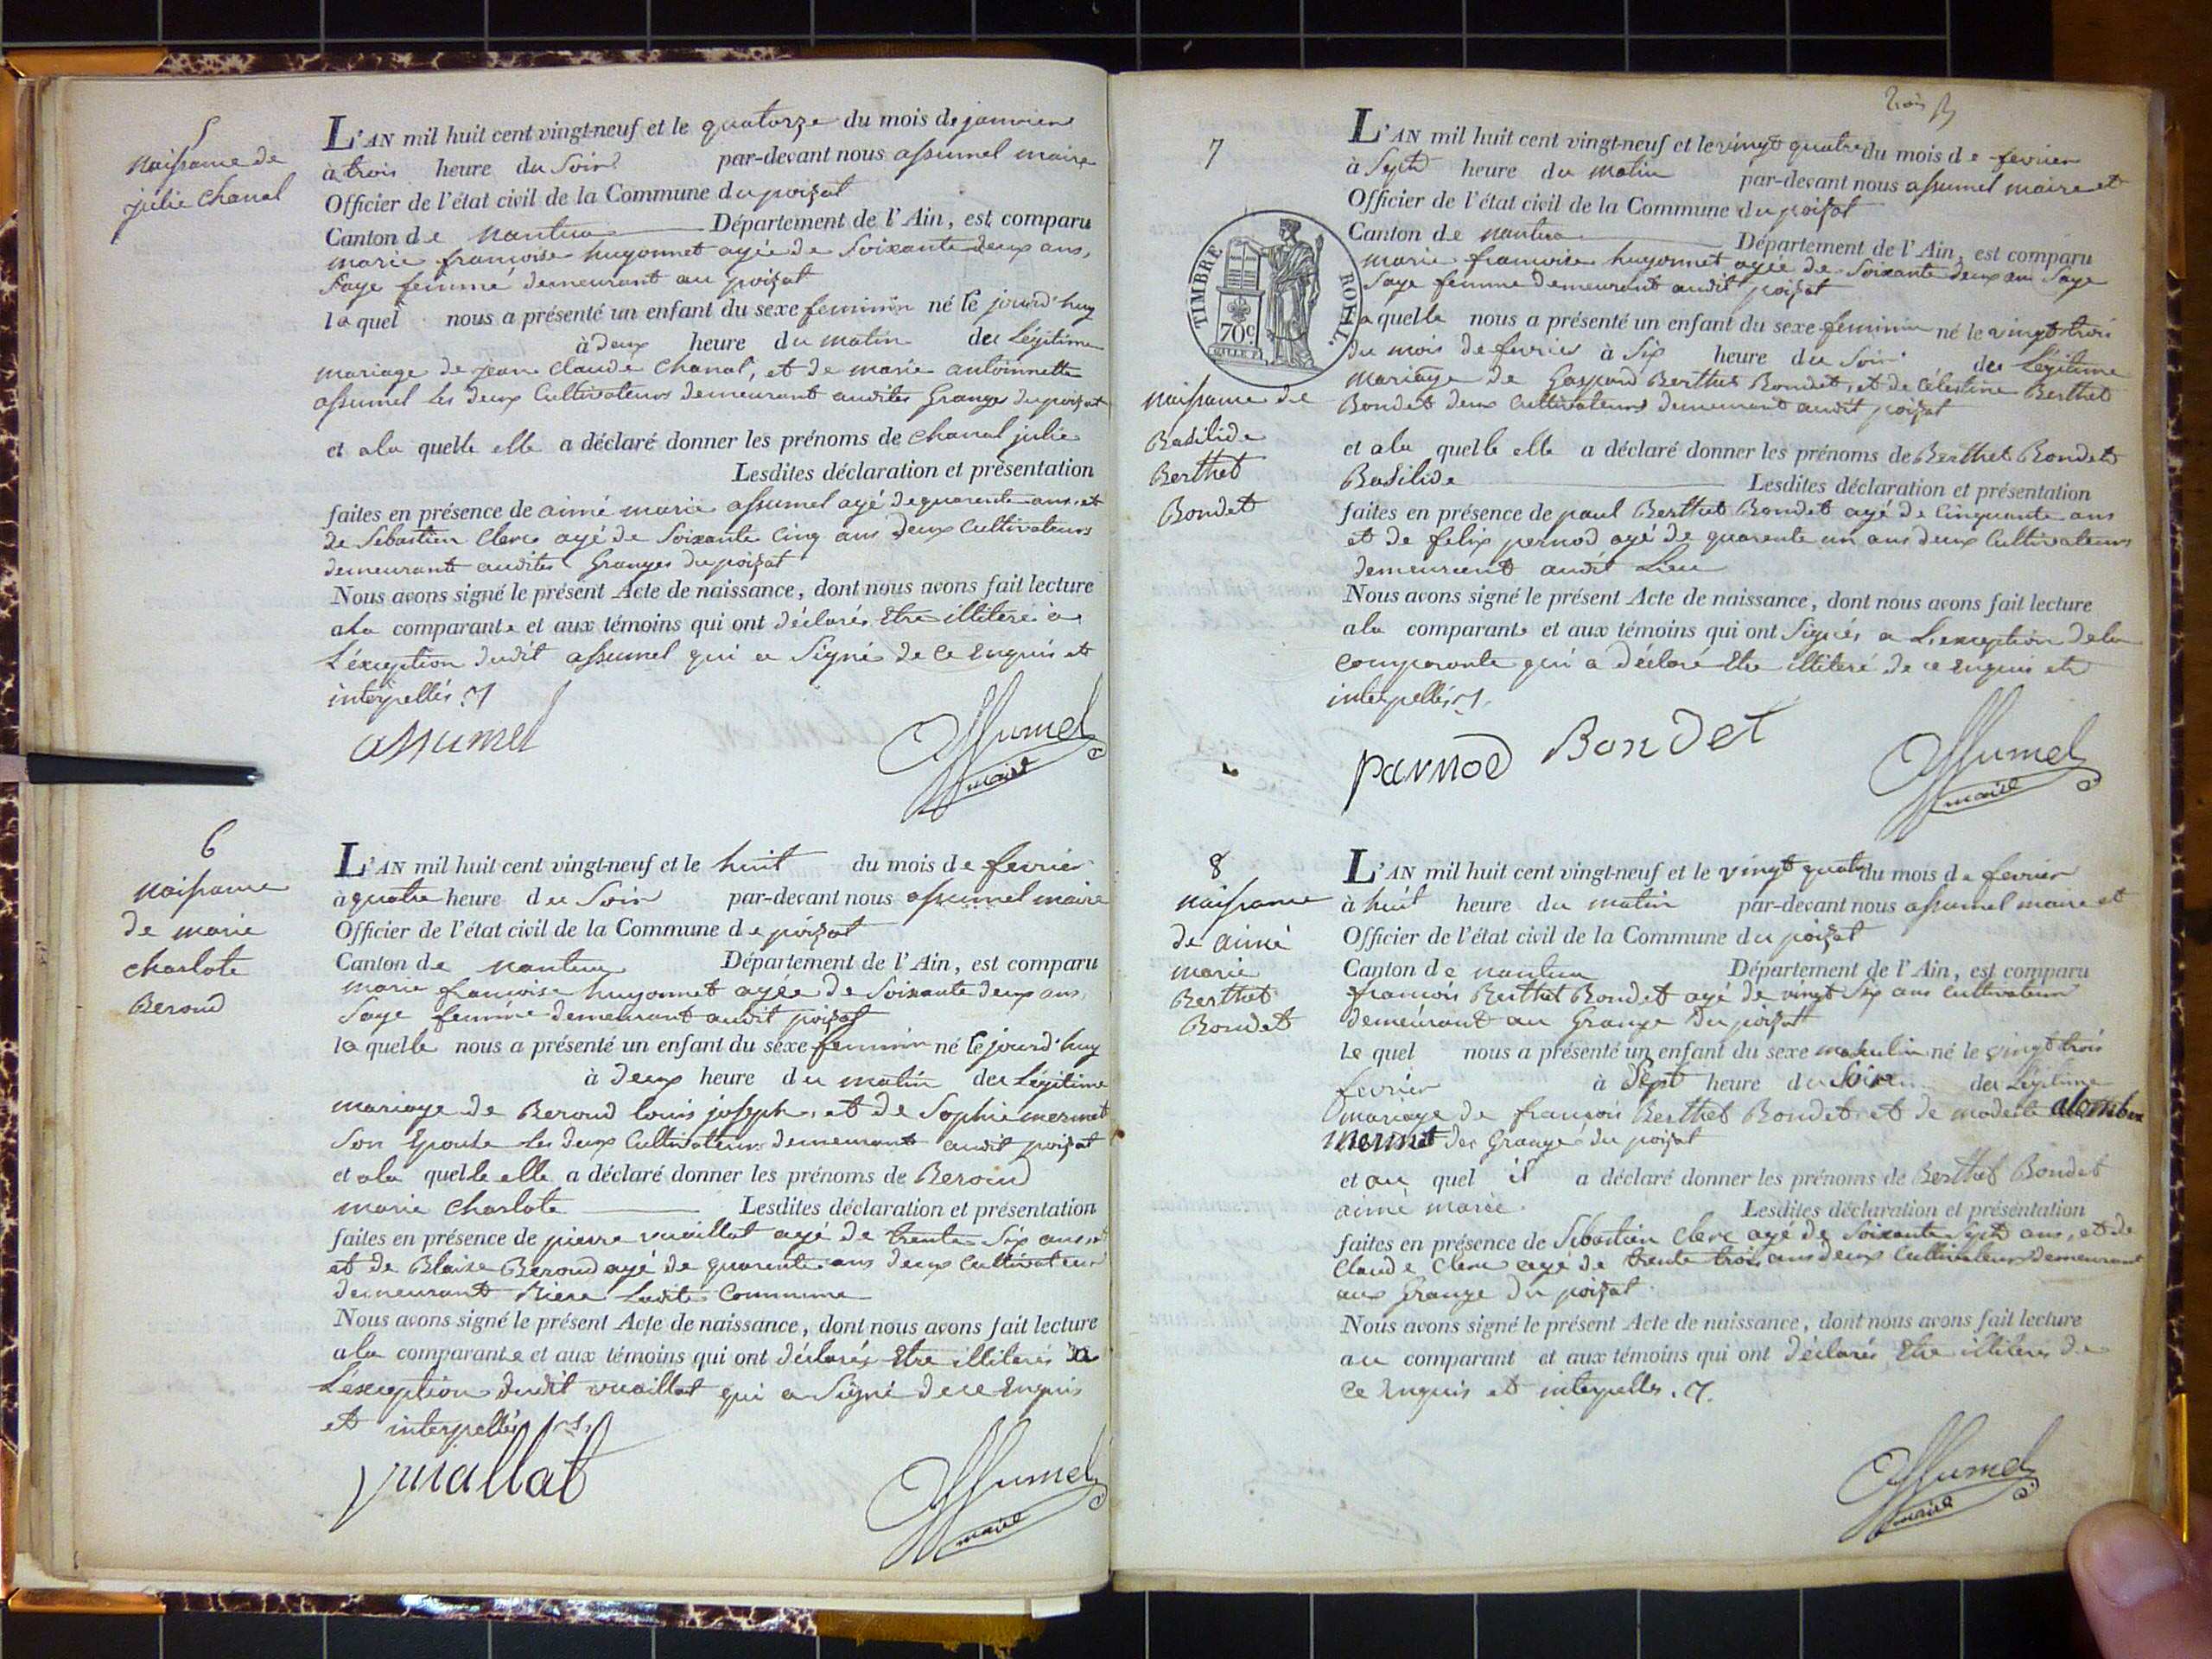 5
Naissance de
julie Chanal
L'AN mil huit cent vingt-neuf et le quatorze du mois de janvier
à trois heure du Soir par-devant nous assumel maire
Officier de l'état civil de la Commune du poizat
Canton de Nantua Département de l'Ain, est comparu
marie francoise huyonnet agée de Soixante deux ans,
Sage femme demeurant au poizat
laquel nous a présenté un enfant du sexe feminin né le jourd'huy
à deux heure du matin du Légitime
mariage de jean Claude Chanal, et de marie antoinnette
assumel les deux Cultivateurs demeurant audites Granges du poizat
et a la quelle elle a déclaré donner les prénoms de Chanal julie
Lesdites déclaration et présentation
faites en présence de aimé marie assumel agé de quarente ans, et
de Sebastien Clerc agé de Soixante Cinq ans deux Cultivateurs
demeurant audites Granges du poizat
Nous avons signé le présent Acte de naissance, dont nous avons fait lecture
a la comparante et aux témoins qui ont déclarés Etre illiteré à
L'éxception dudit assumel qui a Signé de Ce Enquis et
interpellés
assumel
Assumel
maire
6
Naissance
de marie
charlote
Beroud
L'AN mil huit cent vingt-neuf et le huit du mois de fevrier
à quatre heure du Soir par-devant nous assumel maire
Officier de l'état civil de la Commune de poizat
Canton de Nantua Département de l'Ain, est comparu
marie francoise huyonnet agée de Soixante deux ans,
Sage femme demeurant audit poizat
la quelle nous a présenté un enfant du sexe feminin né le jourd'huy
à deux heure du matin du Légitime
mariage de Beroud louis joseph, et de Sophie mermet
Son Epouse les deux Cultivateurs demeurant audit poizat
et a la quelle elle a déclaré donner les prénoms de Beroud
marie Charlote Lesdites déclaration et présentation
faites en présence de pierre vuaillat agé de trente Six ans, et
et de Blaise Beroud agé de quarente ans deux Cultivateur
demeurant Riere Ladite Commune
Nous avons signé le présent Acte de naissance, dont nous avons fait lecture
a la comparante et aux témoins qui ont déclarés Etre illiterés à
L'éxception dudit vuaillat qui a Signé de ce Enquis
et interpellés
vuallat
Assumel
maire
trois
7
TIMBRE ROYAL.
70c
Naissance de
Basilide
Berthet
Bondet
L'AN mil huit cent vingt-neuf et le vingt quatre du mois de fevrier
à Sept heure du matin par-devant nous assumel maire et
Officier de l'état civil de la Commune du poizat
Canton de nantua Département de l'Ain, est comparu
marie francoise huyonnet agée de Soixante deux an Sage
Sage femme demeurant audit poizat
laquelle nous a présenté un enfant du sexe feminin né le vingt trois
du mois de fevrier à Six heure du Soir du Légitime
mariage de Gaspard Berthet Bondet, et de Célestine Berthet
Bondet deux Cultivateurs demeurant audit poizat
et a la quelle elle a déclaré donner les prénoms de Berthet Bondet
Basilide Lesdites déclaration et présentation
faites en présence de paul Berthet Bondet agé de Cinquante ans
et de felix pernod agé de quarente un ans deux Cultivateurs
demeurant audit Lieu
Nous avons signé le présent Acte de naissance, dont nous avons fait lecture
a la comparante et aux témoins qui ont Signés a L'exception de la
comparante qui a déclaré Etre illiteré de ce Enquis et
interpellés
parnod Bondet
Assumel
maire
8
Naissance
de aimé
marie
Berthet
Bondet
L'AN mil huit cent vingt-neuf et le vingt quatre du mois de fevrier
à huit heure du matin par-devant nous assumel maire et
Officier de l'état civil de la Commune du poizat
Canton de nantua Département de l'Ain, est comparu
francois Berthet Bondet agé de vingt Six ans Cultivateur
demeurant au Grange du poizat
le quel nous a présenté un enfant du sexe masculin né le vingt trois
fevrier à Sept heure du Soir du Légitime
mariage de francois Berthet Bondet et de modeste
mermet des Granges du poizat
et au quel il a déclaré donner les prénoms de Berthet Bondet
aimé marie Lesdites déclaration et présentation
faites en présence de Sebastien Clerc agé de Soixante Sept ans, et de
Claude Clerc agé de trente trois ans deux Cultivateurs demeurant
aux Grange du poizat
Nous avons signé le présent Acte de naissance, dont nous avons fait lecture
au comparant et aux témoins qui ont déclarés Etre illiterés de
Ce Enquis et interpellés.
Assumel
maire